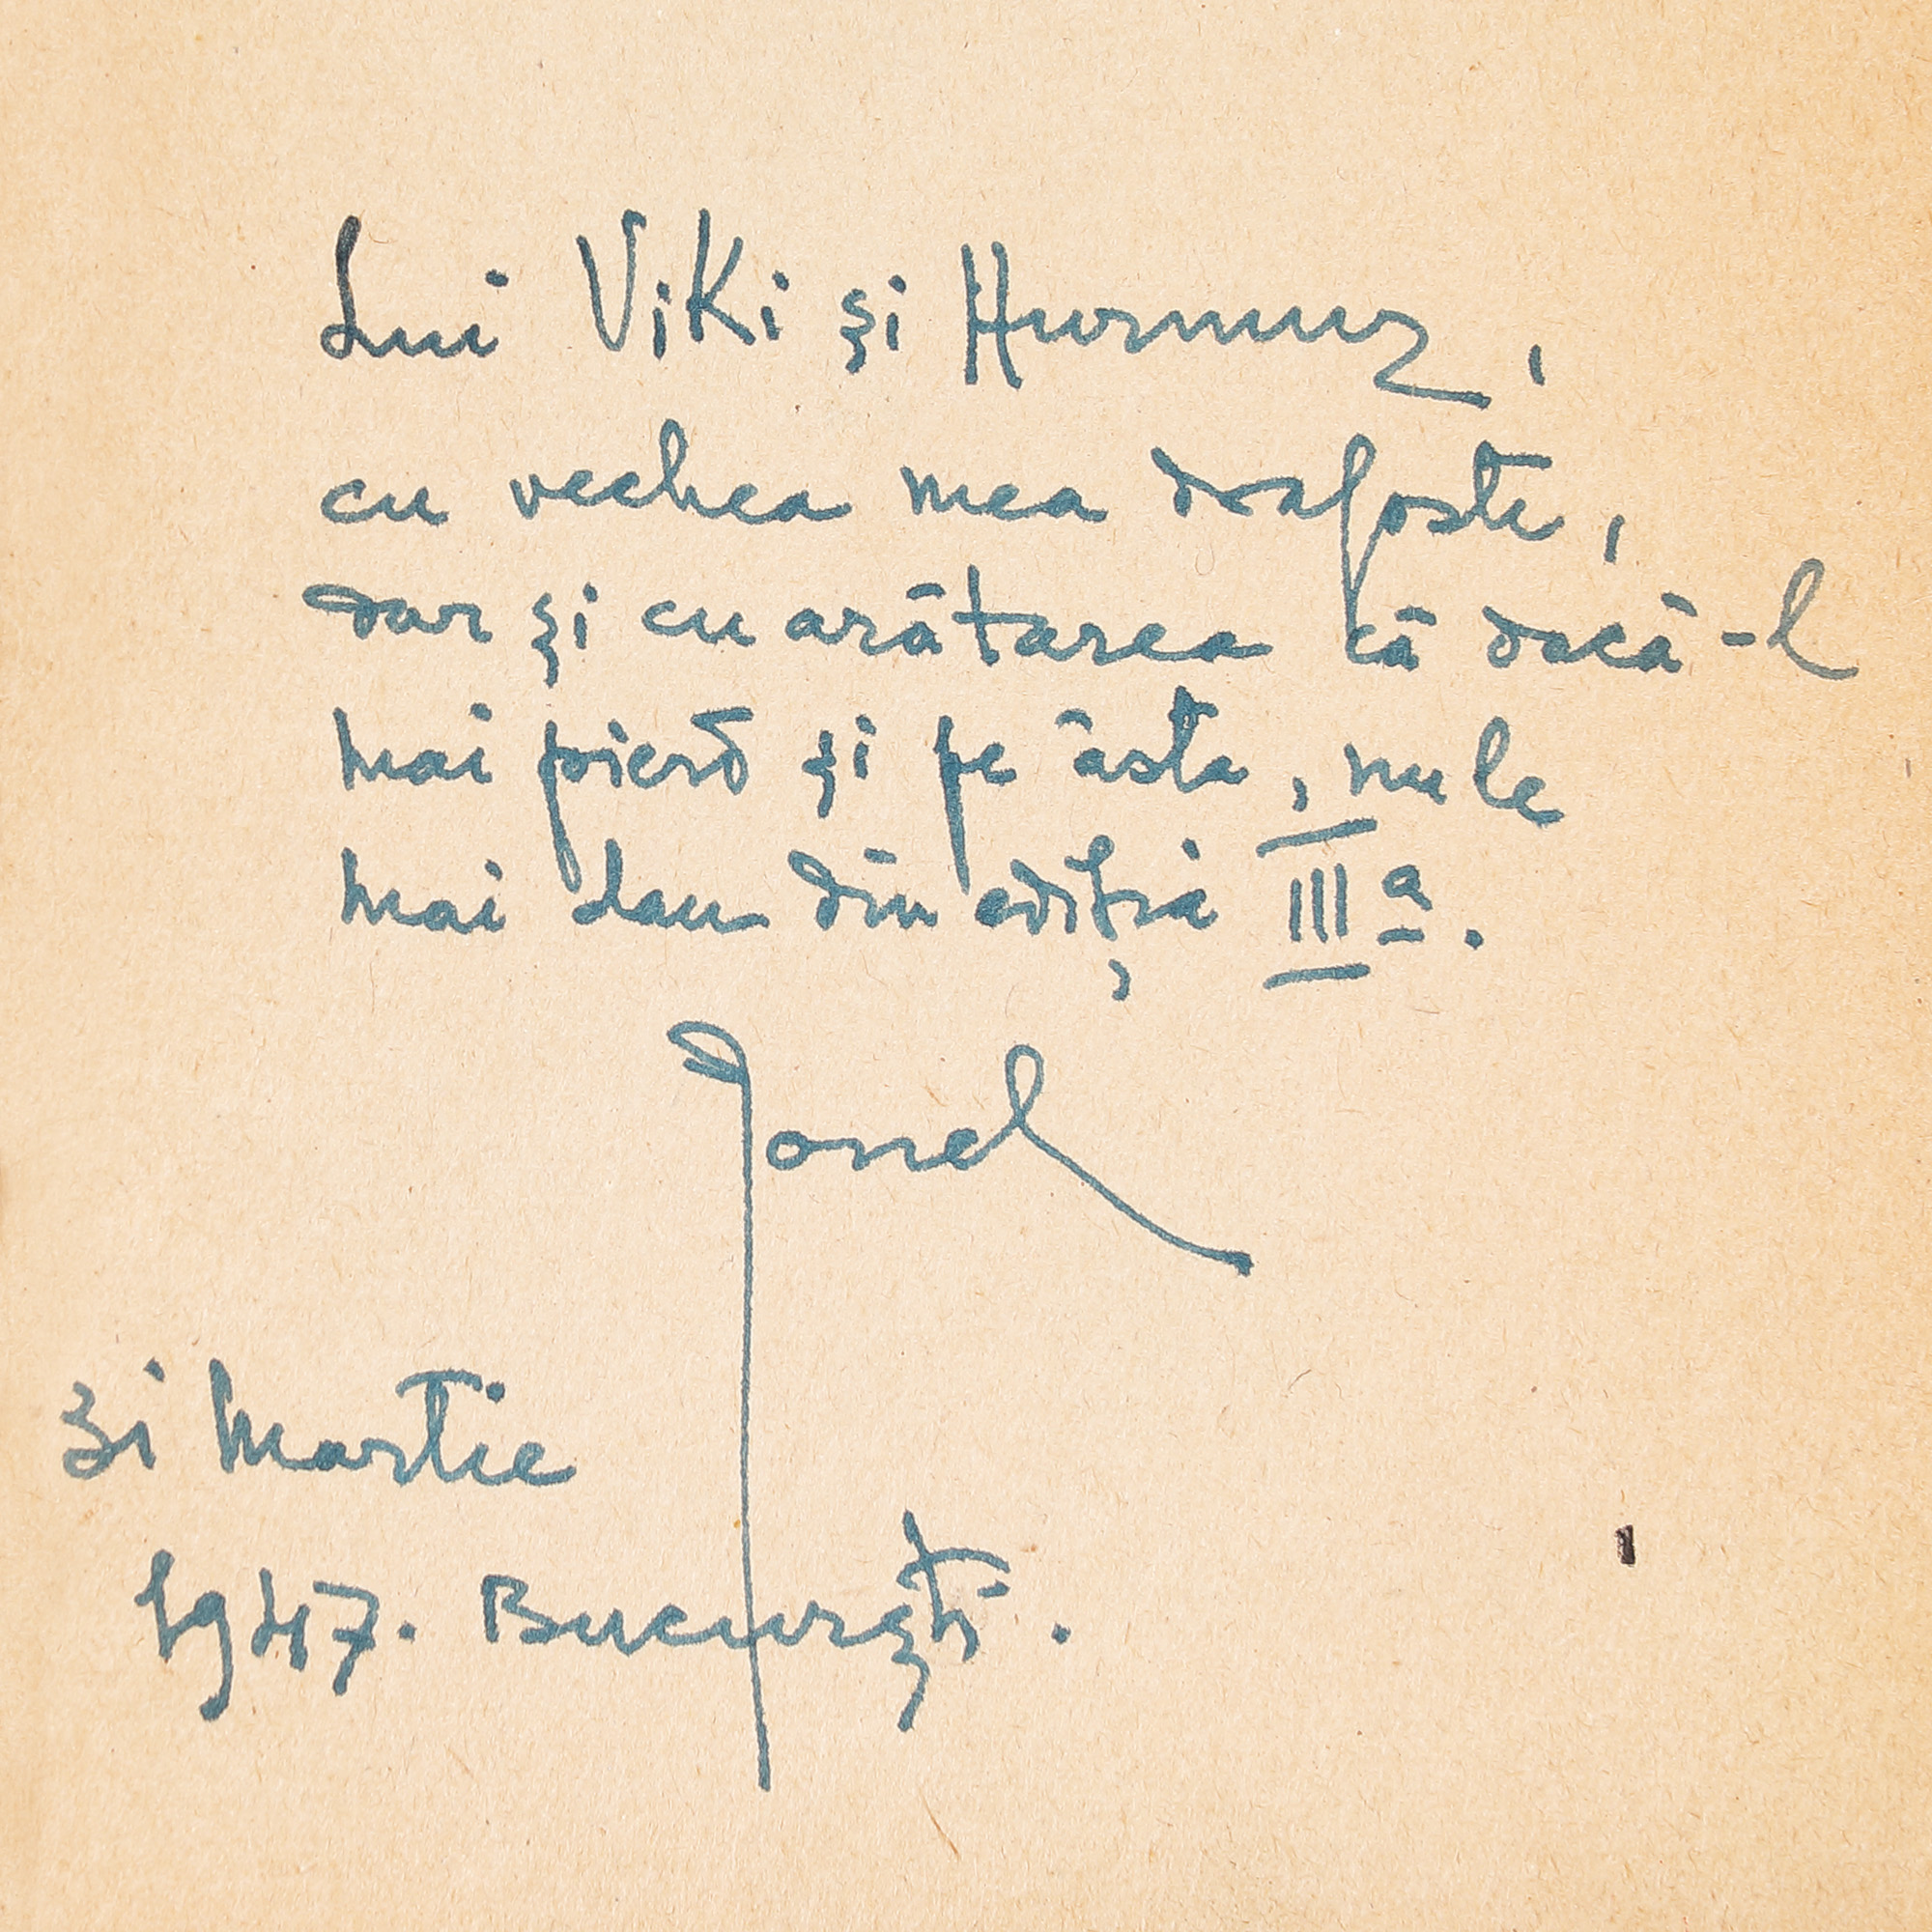 Lui Viki și Hurmuz,
cu vechea mea dragoste,
dar și cu arătarea că dacă-l
mai pierd și pe ăsta, nu le
mai dau din ediția III a.
Ionel
31 Martie
1947. București.